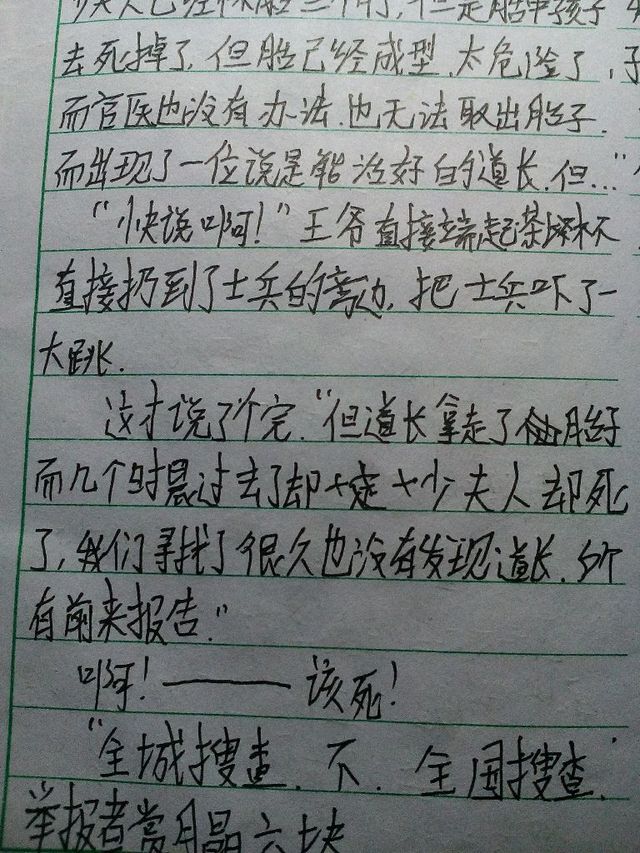 少夫人已经怀胎三个月，但是胎中孩子
去死掉了，但胎已经成型，太危险了，
而官医也没有办法，也无法取出胎子，
而出现了一位说是能治好的道长，但…"
"快说啊！"王爷直接端起茶杯
直接扔到了士兵的旁边，把士兵吓了一
大跳．
这才说了个完，"但道长拿走了胎子
而几个时晨过去了却少夫人却死
了，我们寻找了很久也没有发现道长，
有前来报告。"
啊！——该死！
"全城搜查，不，全国搜查，
举报者赏月晶六块